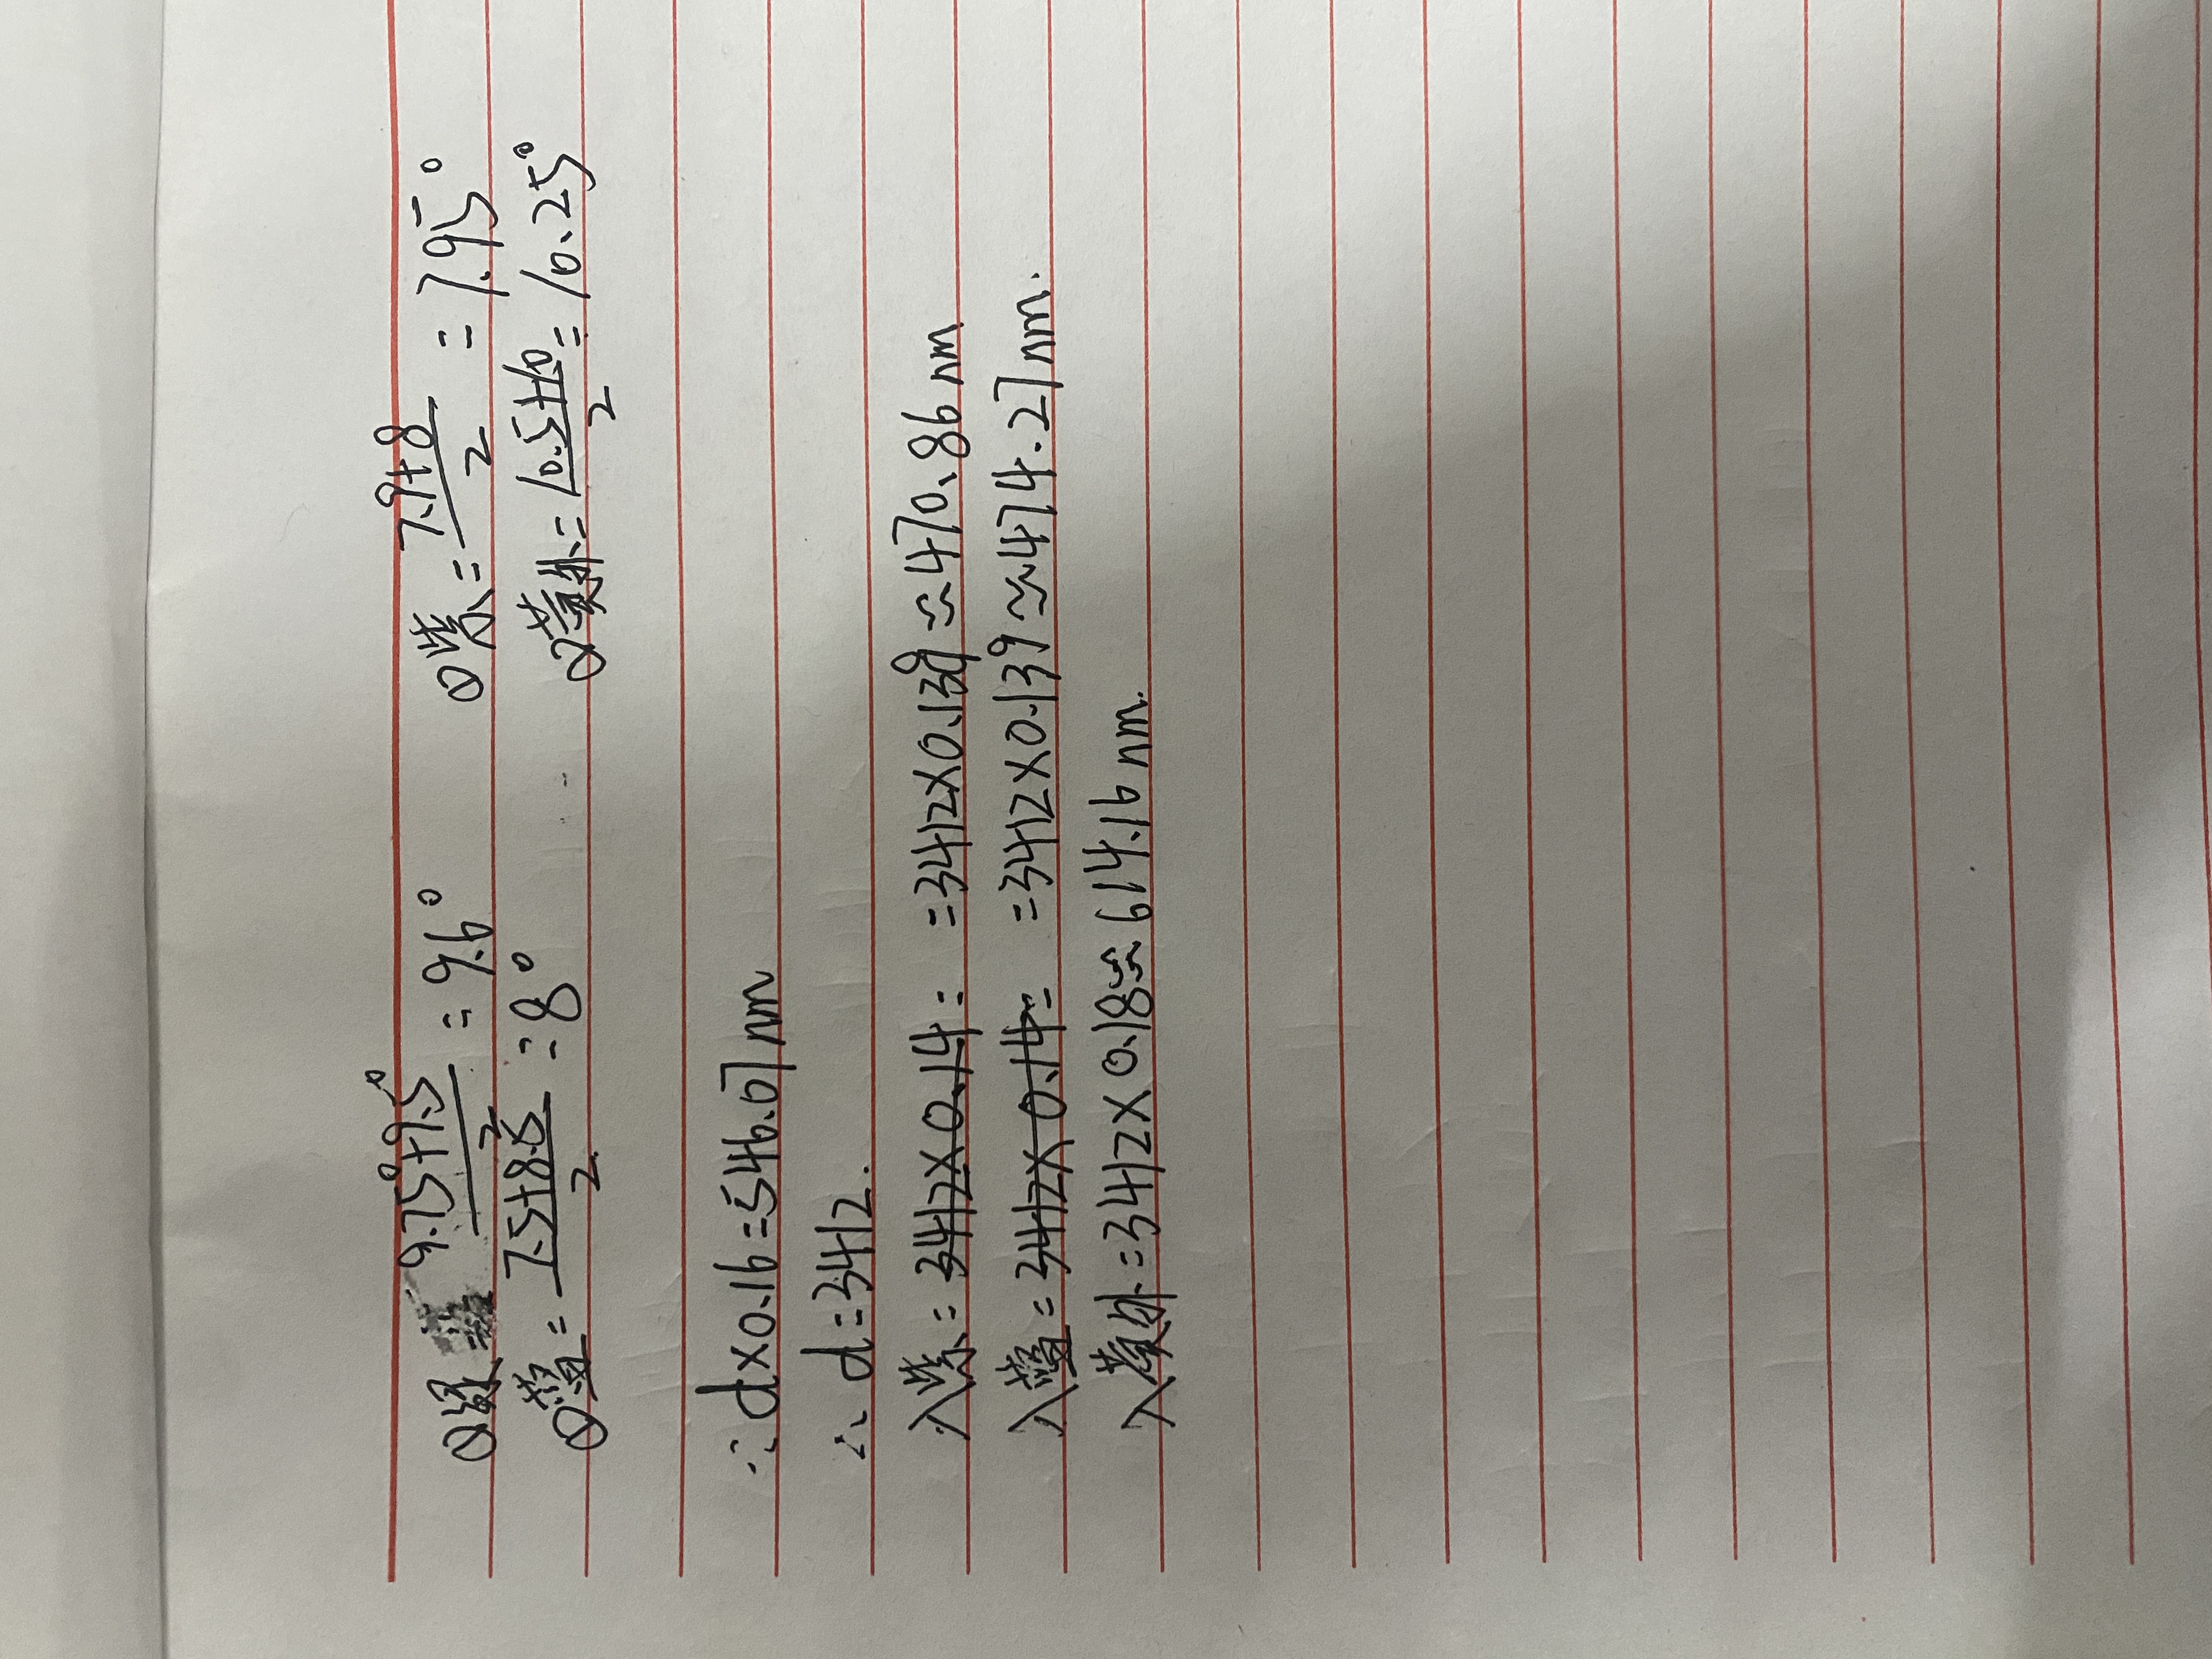 θ绿 = (9.75°+9.5°)/2 = 9.6° θ紫 = (7.9+8)/2 = 7.95°
θ蓝 = (7.5+8.5)/2 = 8° θ黄外 = (10.5+10)/2 = 10.25°
∵ d×0.16=546.07nm
∴ d=3412.
λ紫 = 3412×0.14= =3412×0.138≈470.86nm
λ蓝 = 3412×0.14= =3412×0.139≈474.27nm.
λ黄外=3412×0.18≈614.16nm.